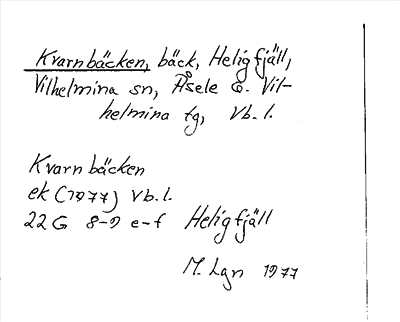 Kvarnbäcken, bäck, Heligfjäll,
Vilhelmina sn, Åsele o. Vil-
helmina tg, Vb. l.
Kvarnbäcken
ek (1977) Vb. l.
22 G 8-9 e-f Heligfjäll
M. Lgn 1977